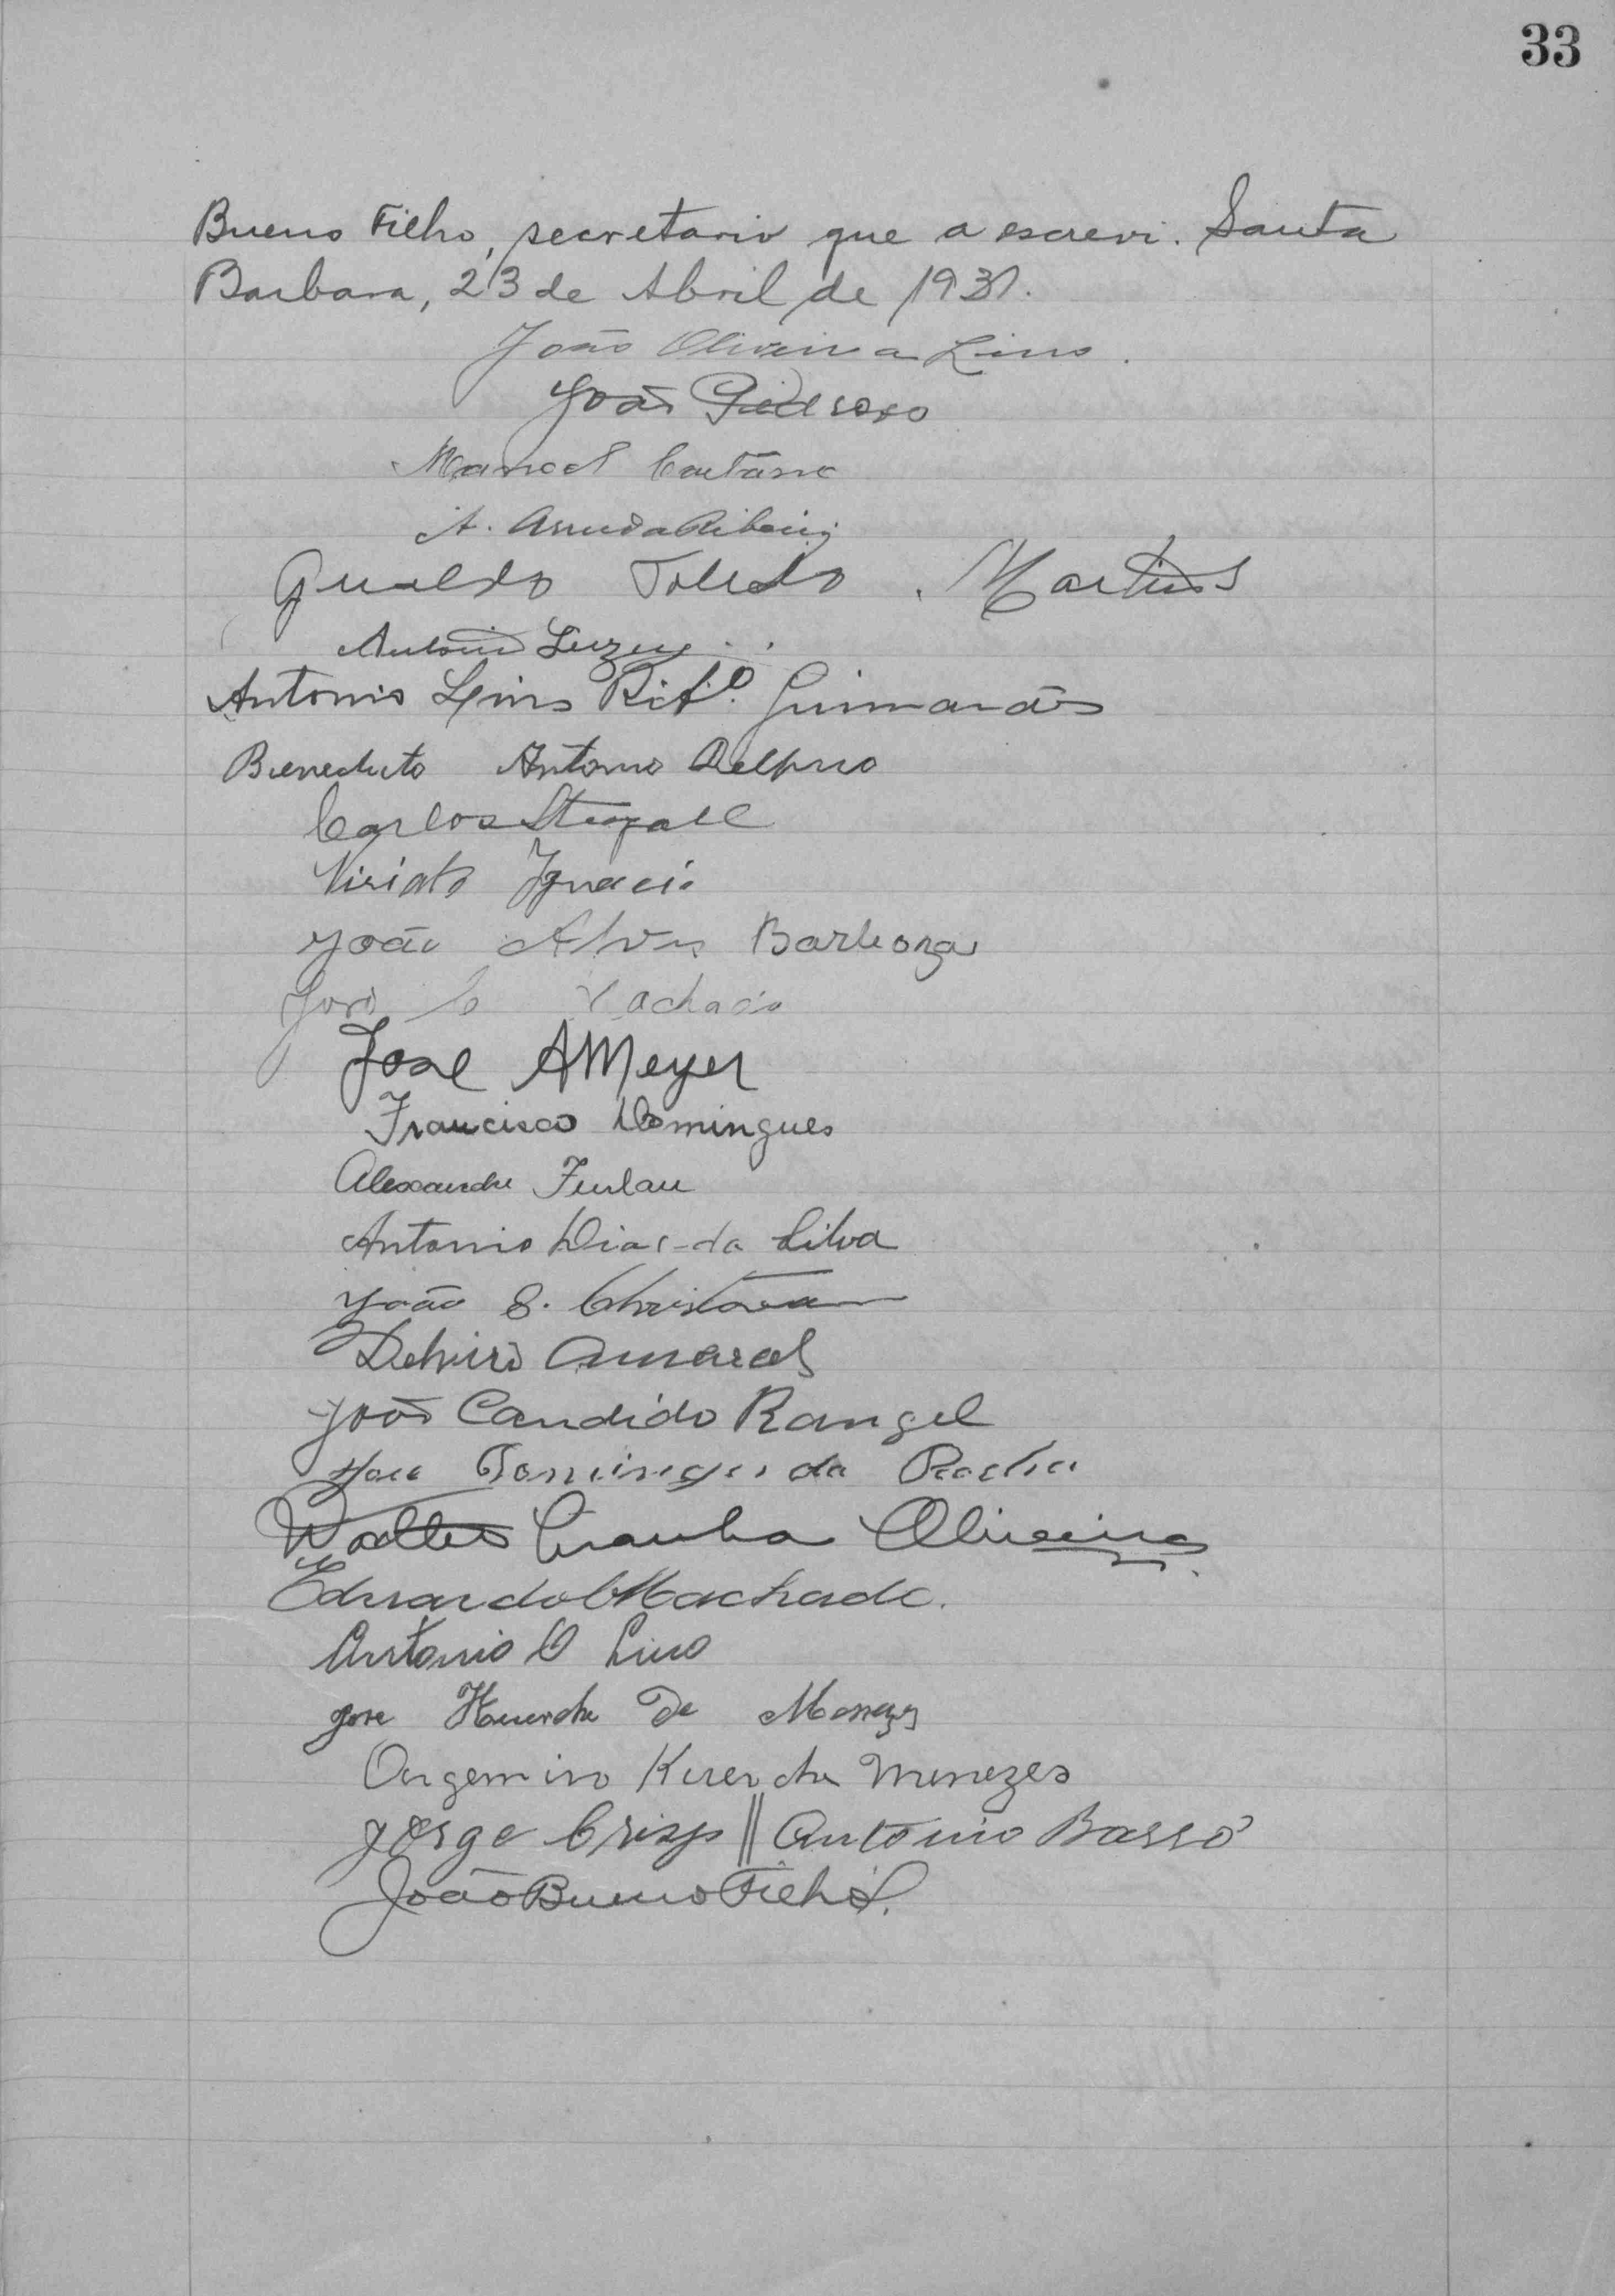 33
Bueno Filho, secretario que a escrevi. Santa
Barbara, 23 de Abril de 1931.
João Oliveira Lino.
João Pedroso
Manoel Caetano
A. Arruda Ribeiro
Toledo Martins
Antonio
Antonio Luis Rib.º Guimarães
Benedicto Antonio Delfino
Carlos Stegall
Viriato Ignacio
João Alves Barboza
José C Machado
José A Meyer
Francisco Domingues
Alexandre Furlan
Antonio Dias da Silva
João S. Christovam
Amaral
João Candido Rangel
José Domingues da Rocha
Walter Oliveira
Eduardo C Machado.
Antonio O Lino
José de
Menezes
Jorge Crisp || Antonio Basso
João Bueno Filho.